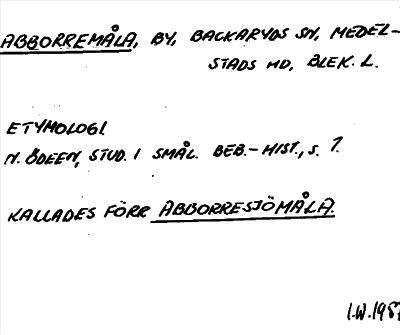 ABBORREMÅLA, BY, BACKARYDS SN, MEDEL-
STADS HD, BLEK. L.
ETYMOLOGI.
N. ÖDEEN, STUD. I SMÅL. BEB.-HIST., S. 7.
KALLADES FÖRR ABBORRESJÖMÅLA.
I.W. 1987